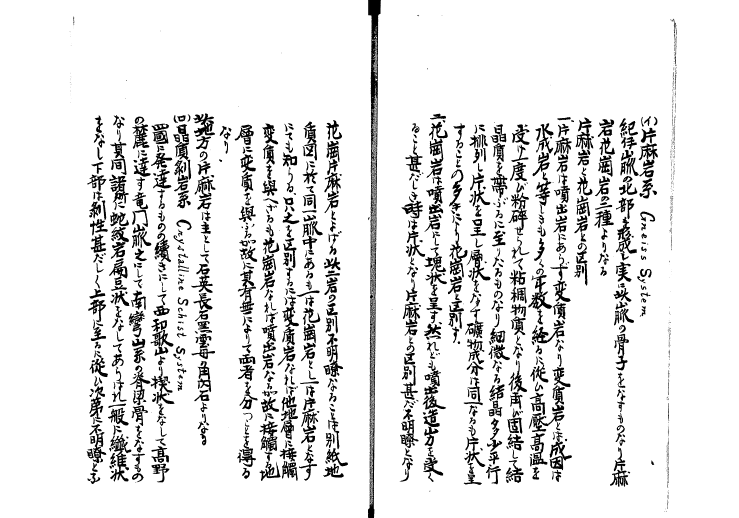 (イ)片麻岩系 Gneiss System
紀伊山脈の北部を形成し実に此山脈の骨子をなすものなり片麻
岩花崗岩の二種よりなる
片麻岩と花崗岩との区別
一、片麻岩は噴出岩にあらず変質岩なり変質岩とは成因は
水成岩と等しきも多くの年数を経るに従い高圧高温を
受け一度び粉砕せられて粘稠物質となり後再び固結して結
晶質を帯ぶるに至りたるものなり細微なる結晶多少平行
に排列し片状を呈し層状をなす礦物成分は同一なるも片状を呈
することの多きにより花崗岩と区別す、
二、花崗岩は噴出岩にして塊状を呈す然れども噴出後造山力を受く
ること甚だしき時は片状となり片麻岩との区別甚だ不明瞭となり
花崗片麻岩とよばる此二岩の区別不明瞭なることは別紙地
質図に於て同一山脈中にあるも一は花崗岩とし一は片麻岩となす
にても知らる只之を区別するには変質岩なれば他地層に接触
変質を与へざるも花崗岩なれば噴出岩なるが故に接触す地
層に変質を与ふるが故に其有無によりて両者を分つことを得る
なり
此地方の片麻岩は主として石英長石黒雲母の角閃石よりなる
(ロ)晶質剥岩系 Crystalline Schist System
四国に発達するものの続きにして西和歌山より楔状をなして高野
の麓に達す竜門山脈之にして南彎山系の脊梁骨をなすもの
なり其間諸所に蛇紋岩扁豆状をなしてあらはれ一般に繊維状
をなし下部は剥性甚だしく上部に至るに従い次第に不明瞭とな